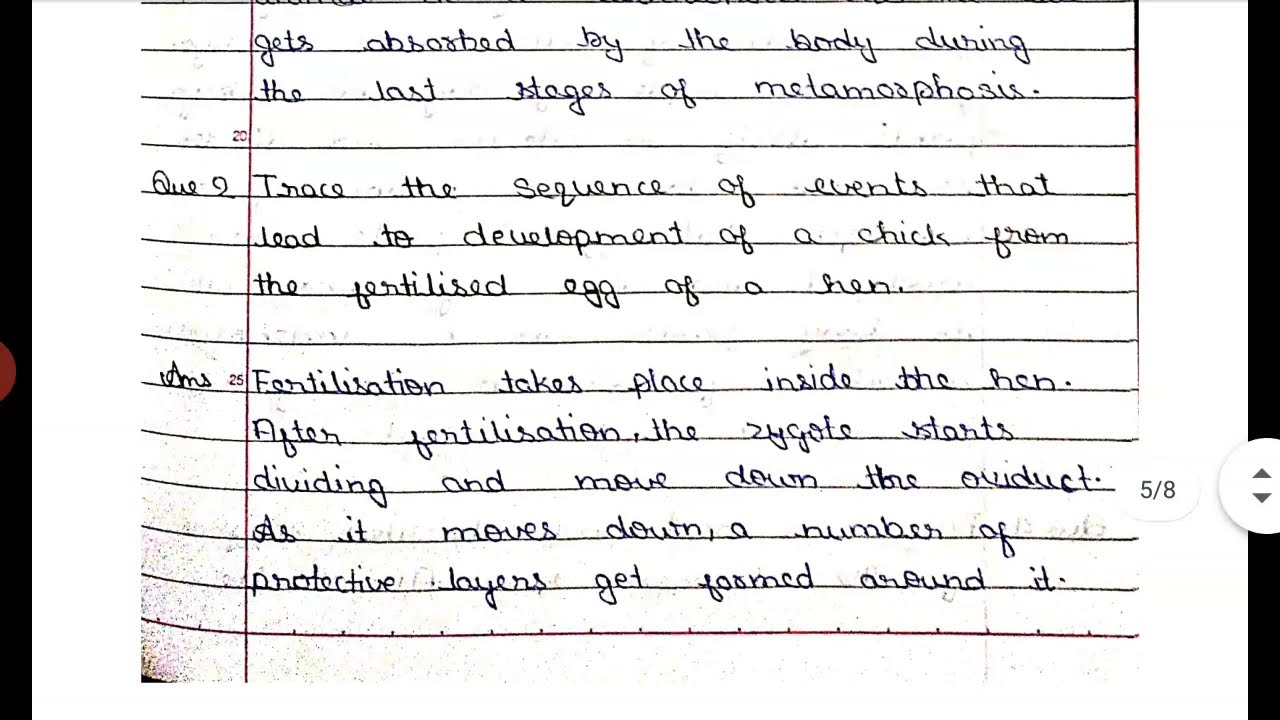 gets absorbed by the body during
the last stages of metamorphosis.
20
Que 9 Trace the sequence of events that
lead to development of a chick from
the fertilised egg of a hen.
Ans 25 Fertilisation takes place inside the hen.
After fertilisation, the zygote starts
dividing and move down the oviduct.
As it moves down, a number of
protective layers get formed around it.
5/8